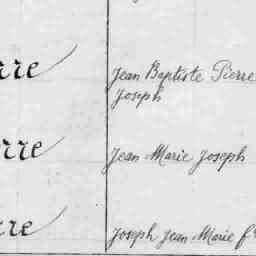 rre Jean Baptiste Pierre
Joseph
rre Jean Marie Joseph
rre Joseph Jean Marie f